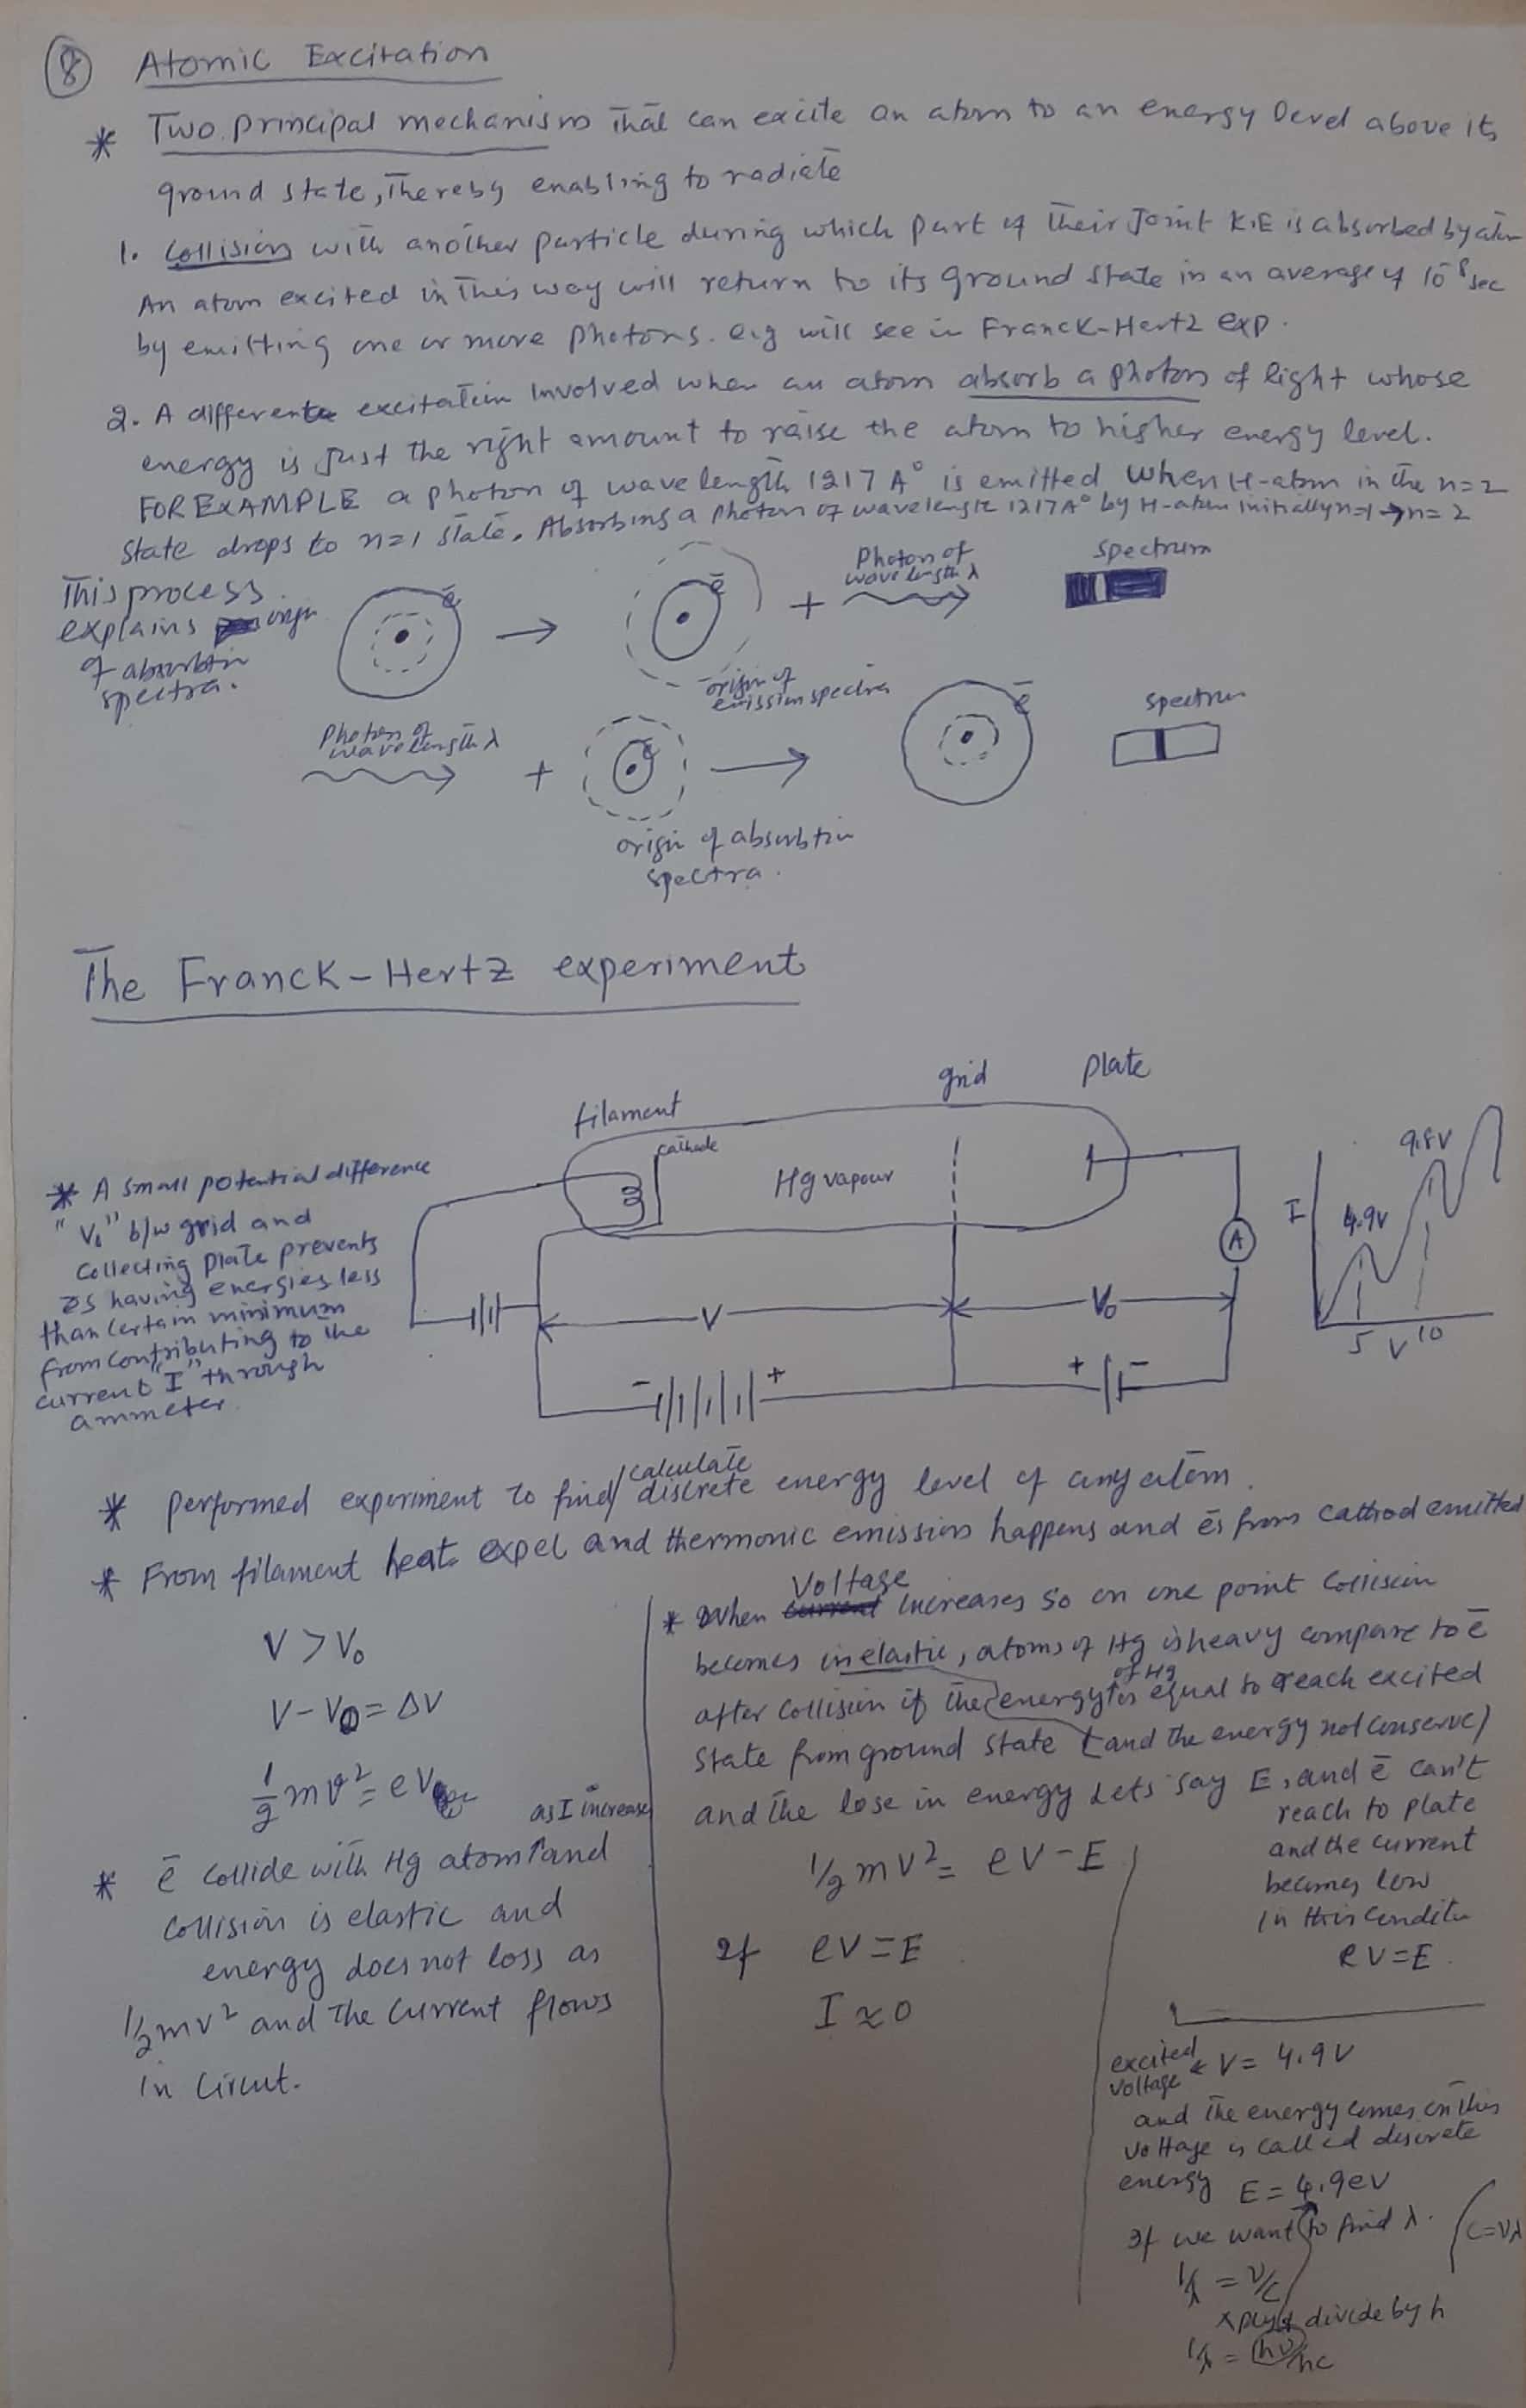 8 Atomic Excitation
* Two principal mechanism that can excite an atom to an energy level above its
ground state, thereby enabling to radiate
1. Collision with another particle during which part of their joint K.E is absorbed by atom
An atom excited in this way will return to its ground state in an average of 10⁻⁸ sec
by emitting one or more photons. e.g will see in Franck-Hertz exp.
2. A different excitation involved when an atom absorb a photon of light whose
energy is just the right amount to raise the atom to higher energy level.
FOR EXAMPLE a photon of wavelength 1217 A° is emitted when H-atom in the n=2
state drops to n=1 state. Absorbing a photon of wavelength 1217A° by H-atom initially n=1 → n=2
This process
explains origin
of absorbtin
spectra.
ē
→
ē
+
Photon of
wavelength λ
spectrum
origin of
emission spectra
Photon of
wavelength λ
+
ē
→
ē
spectrum
origin of absorbtion
spectra.
The Franck-Hertz experiment
filament
cathode
Hg vapour
grid
plate
A
V
V₀
- +
+ -
I
4.9V
9.8V
5 V 10
* A small potential difference
"V₀" b/w grid and
collecting plate prevents
ēs having energies less
than certain minimum
from contributing to the
current "I" through
ammeter.
* performed experiment to find/calculate discrete energy level of any atom.
* From filament heat expel and thermonic emission happens and ēs from cathod emitted
V > V₀
V - V₀ = ΔV
½ mv² = eV
as I increase
* ē collide with Hg atom and
collision is elastic and
energy does not loss as
½mv² and the current flows
in Circut.
* When Voltage increases so on one point collision
becomes inelastic, atoms of Hg is heavy compare to ē
after collision if the energy of Hg is equal to reach excited
state from ground state (and the energy not conserve)
and the lose in energy Lets say E, and ē can't
reach to plate
and the current
becomes low
in this conditn
eV=E
½ mv² = eV-E
If eV=E
I ≈ 0
excited
voltage
V = 4.9V
and the energy comes on this
voltage is called discrete
energy E = 4.9eV
If we want to find λ.
c=νλ
1/λ = ν/c
xply & divide by h
1/λ = hν/hc